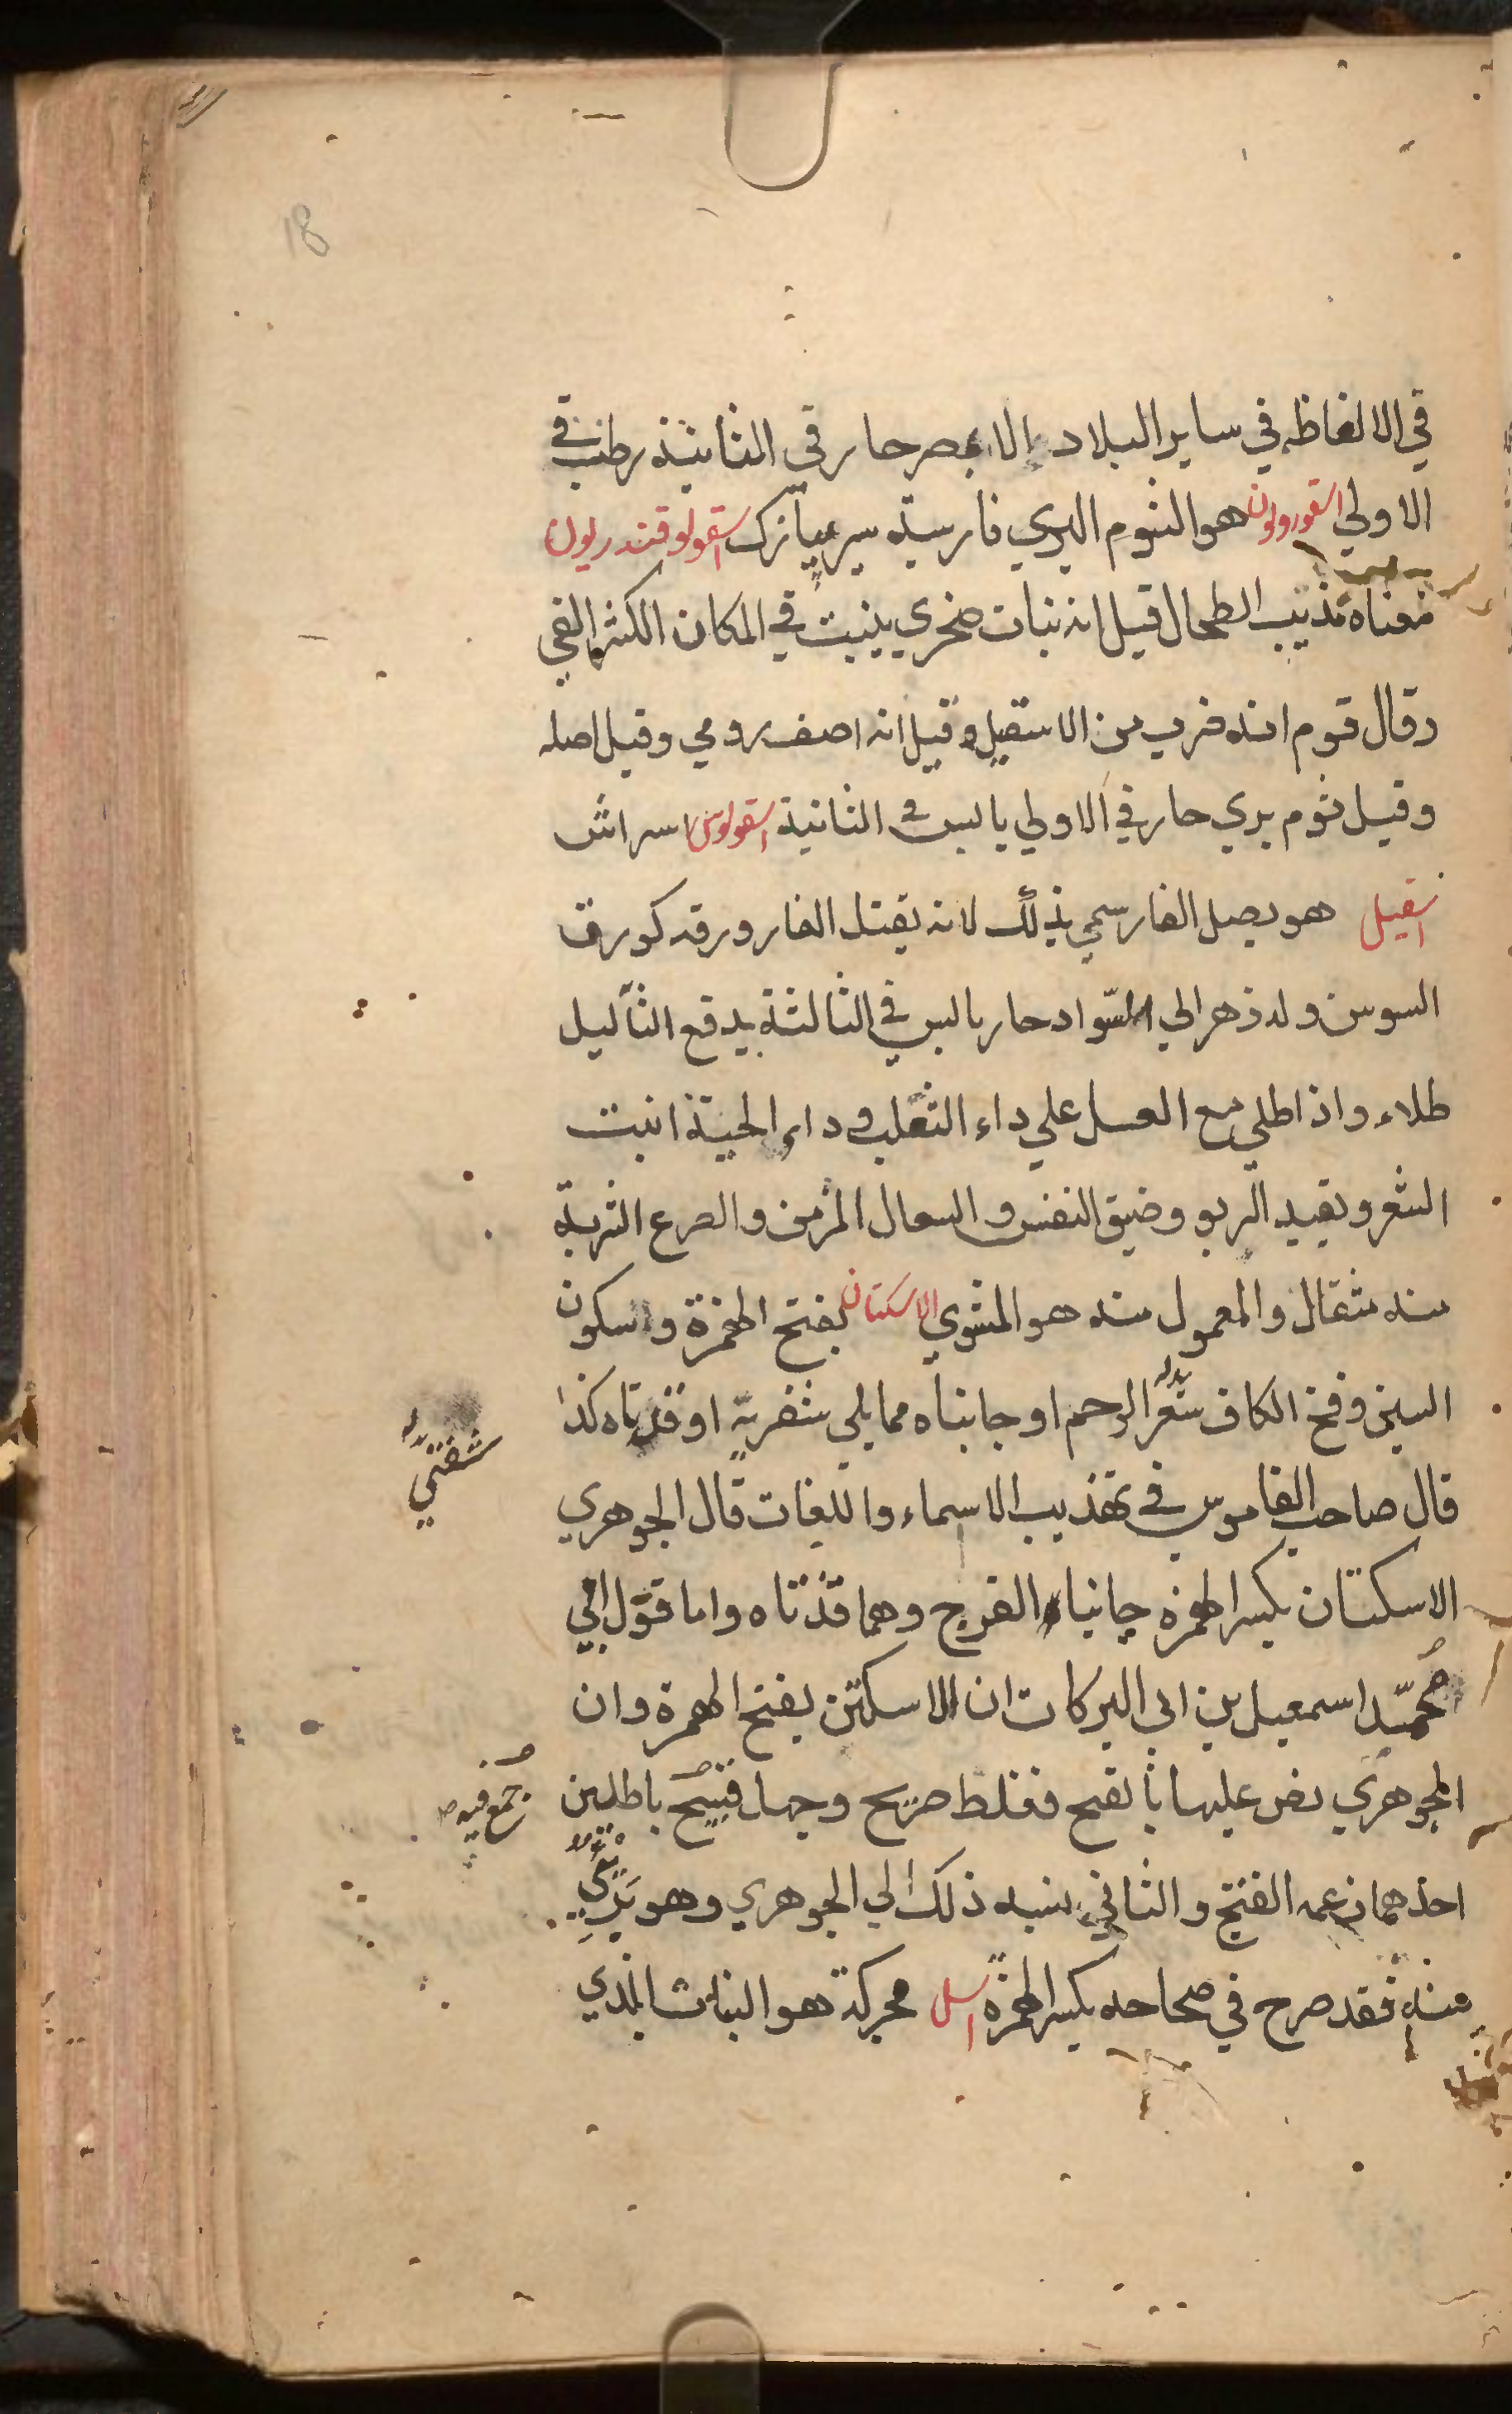 18
في الالفاظه في ساير البلاد الا بمصر حار في الثانية رطب في
الاولي اسقورديون هو الثوم البري فارسيه سير بيابزك اسقولوقندريون
معناه مذيب الطحال قيل انه نبات صخري ينبت في المكان الكثير الفي
وقال قوم انه ضرب من الاشقيل وقيل انه اصف رومي وقيل اصله
وقيل ثوم بري حار في الاولي يابس في الثانية اسقولوس اسراش
اسقيل هو بصل الفار سمي بذلك لانه يقتل الفار ورقه كورق
السوسن وله زهر الي السواد حار يابس في الثالثة يدفع الثآليل
طلاء واذا طلي مع العسل علي داء الثعلب و داء الحية انبت
الشعر ويفيد الربو وضيق النفس والسعال المزمن والصرع الشربة
منه مثقال والمعمول منه هو المشوي الاسكتان بفتح الهمزة وسكون
السين وفتح الكاف شعر الرحم او جانباه مما يلي شفريه او قذتاه كذا
شفتي
قال صاحب القاموس في تهذيب الاسماء واللغات قال الجوهري
الاسكتان بكسر الهمزة جانبا الفرج وهما قذتاه واما قول ابي
محمد اسمعيل بن ابي البركات ان الاسكتن بفتح الهمزة وان
الجوهري نص عليها بالفتح فغلط صريح وجهل قبيح باطلين
جمع فيه
احدهما زعمه الفتح والثاني نسبه ذلك الي الجوهري وهو بري
منه فقد صرح في صحاحه بكسر الهمزة اسل محركة هو النبات الذي